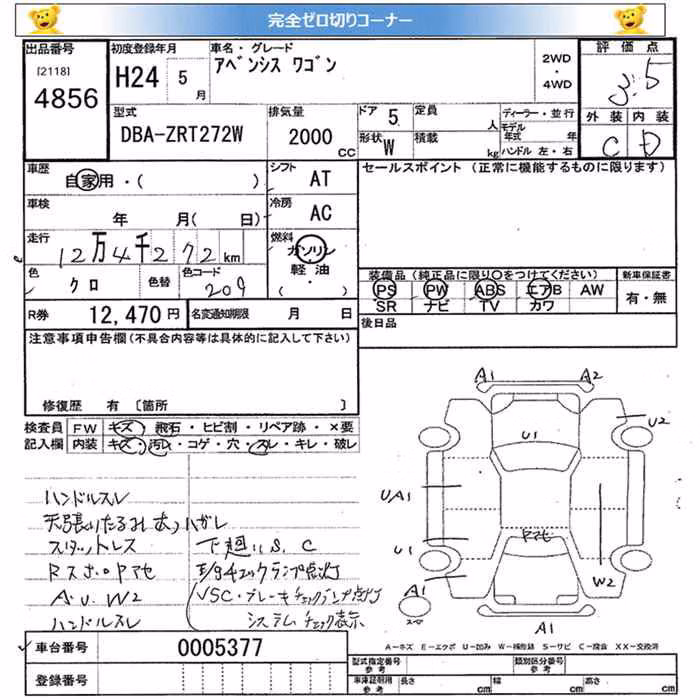 完全ゼロ切りコーナー
出品番号 [2118] 4856
初度登録年月 H24 5月
車名・グレード アベンシス ワゴン
2WD・4WD
評価点 3.5
外装 内装
C D
型式 DBA-ZRT272W
排気量 2000 CC
ドア 5 定員 人
形状 W 積載 kg
ディーラー・並行
モデル年式 年
ハンドル 左・右
車歴 自家用・( )
シフト AT
セールスポイント (正常に機能するものに限ります)
車検 年 月( 日)
冷房 AC
走行 12万4千272km
燃料 ガソリン 軽・油 (・)
色 クロ 色替 色コード 209
装備品 (純正品に限り○をつけてください) 新車保証書
PS PW ABS エアB AW 有・無
SR ナビ TV カワ
R券 12,470円 名変通知期限 月 日
後日品
注意事項申告欄(不具合内容等は具体的に記入して下さい)
修復歴 有 〔箇所 〕
検査員 FW キズ・飛石・ヒビ割・リペア跡・×要
記入欄 内装 キズ・汚レ・コゲ・穴・スレ・キレ・破レ
ハンドルスレ
天張りたるみ 大 ハガレ
スタットレス 下廻りS.C
E/gチェックランプ点灯
A.U.W2 VSC・ブレーキチェックランプ点灯
ハンドルスレ システムチェック表示
A1 A2
U2
U1
UA1
U1
W2
A1
A1
A-キズ E-エクボ U-凹み W-補修跡 S-サビ C-腐食 XX-交換済
車台番号 0005377
登録番号
型式指定番号 参考 類別区分番号 参考
車庫証明用 参考 長さ cm 幅 cm 高さ cm